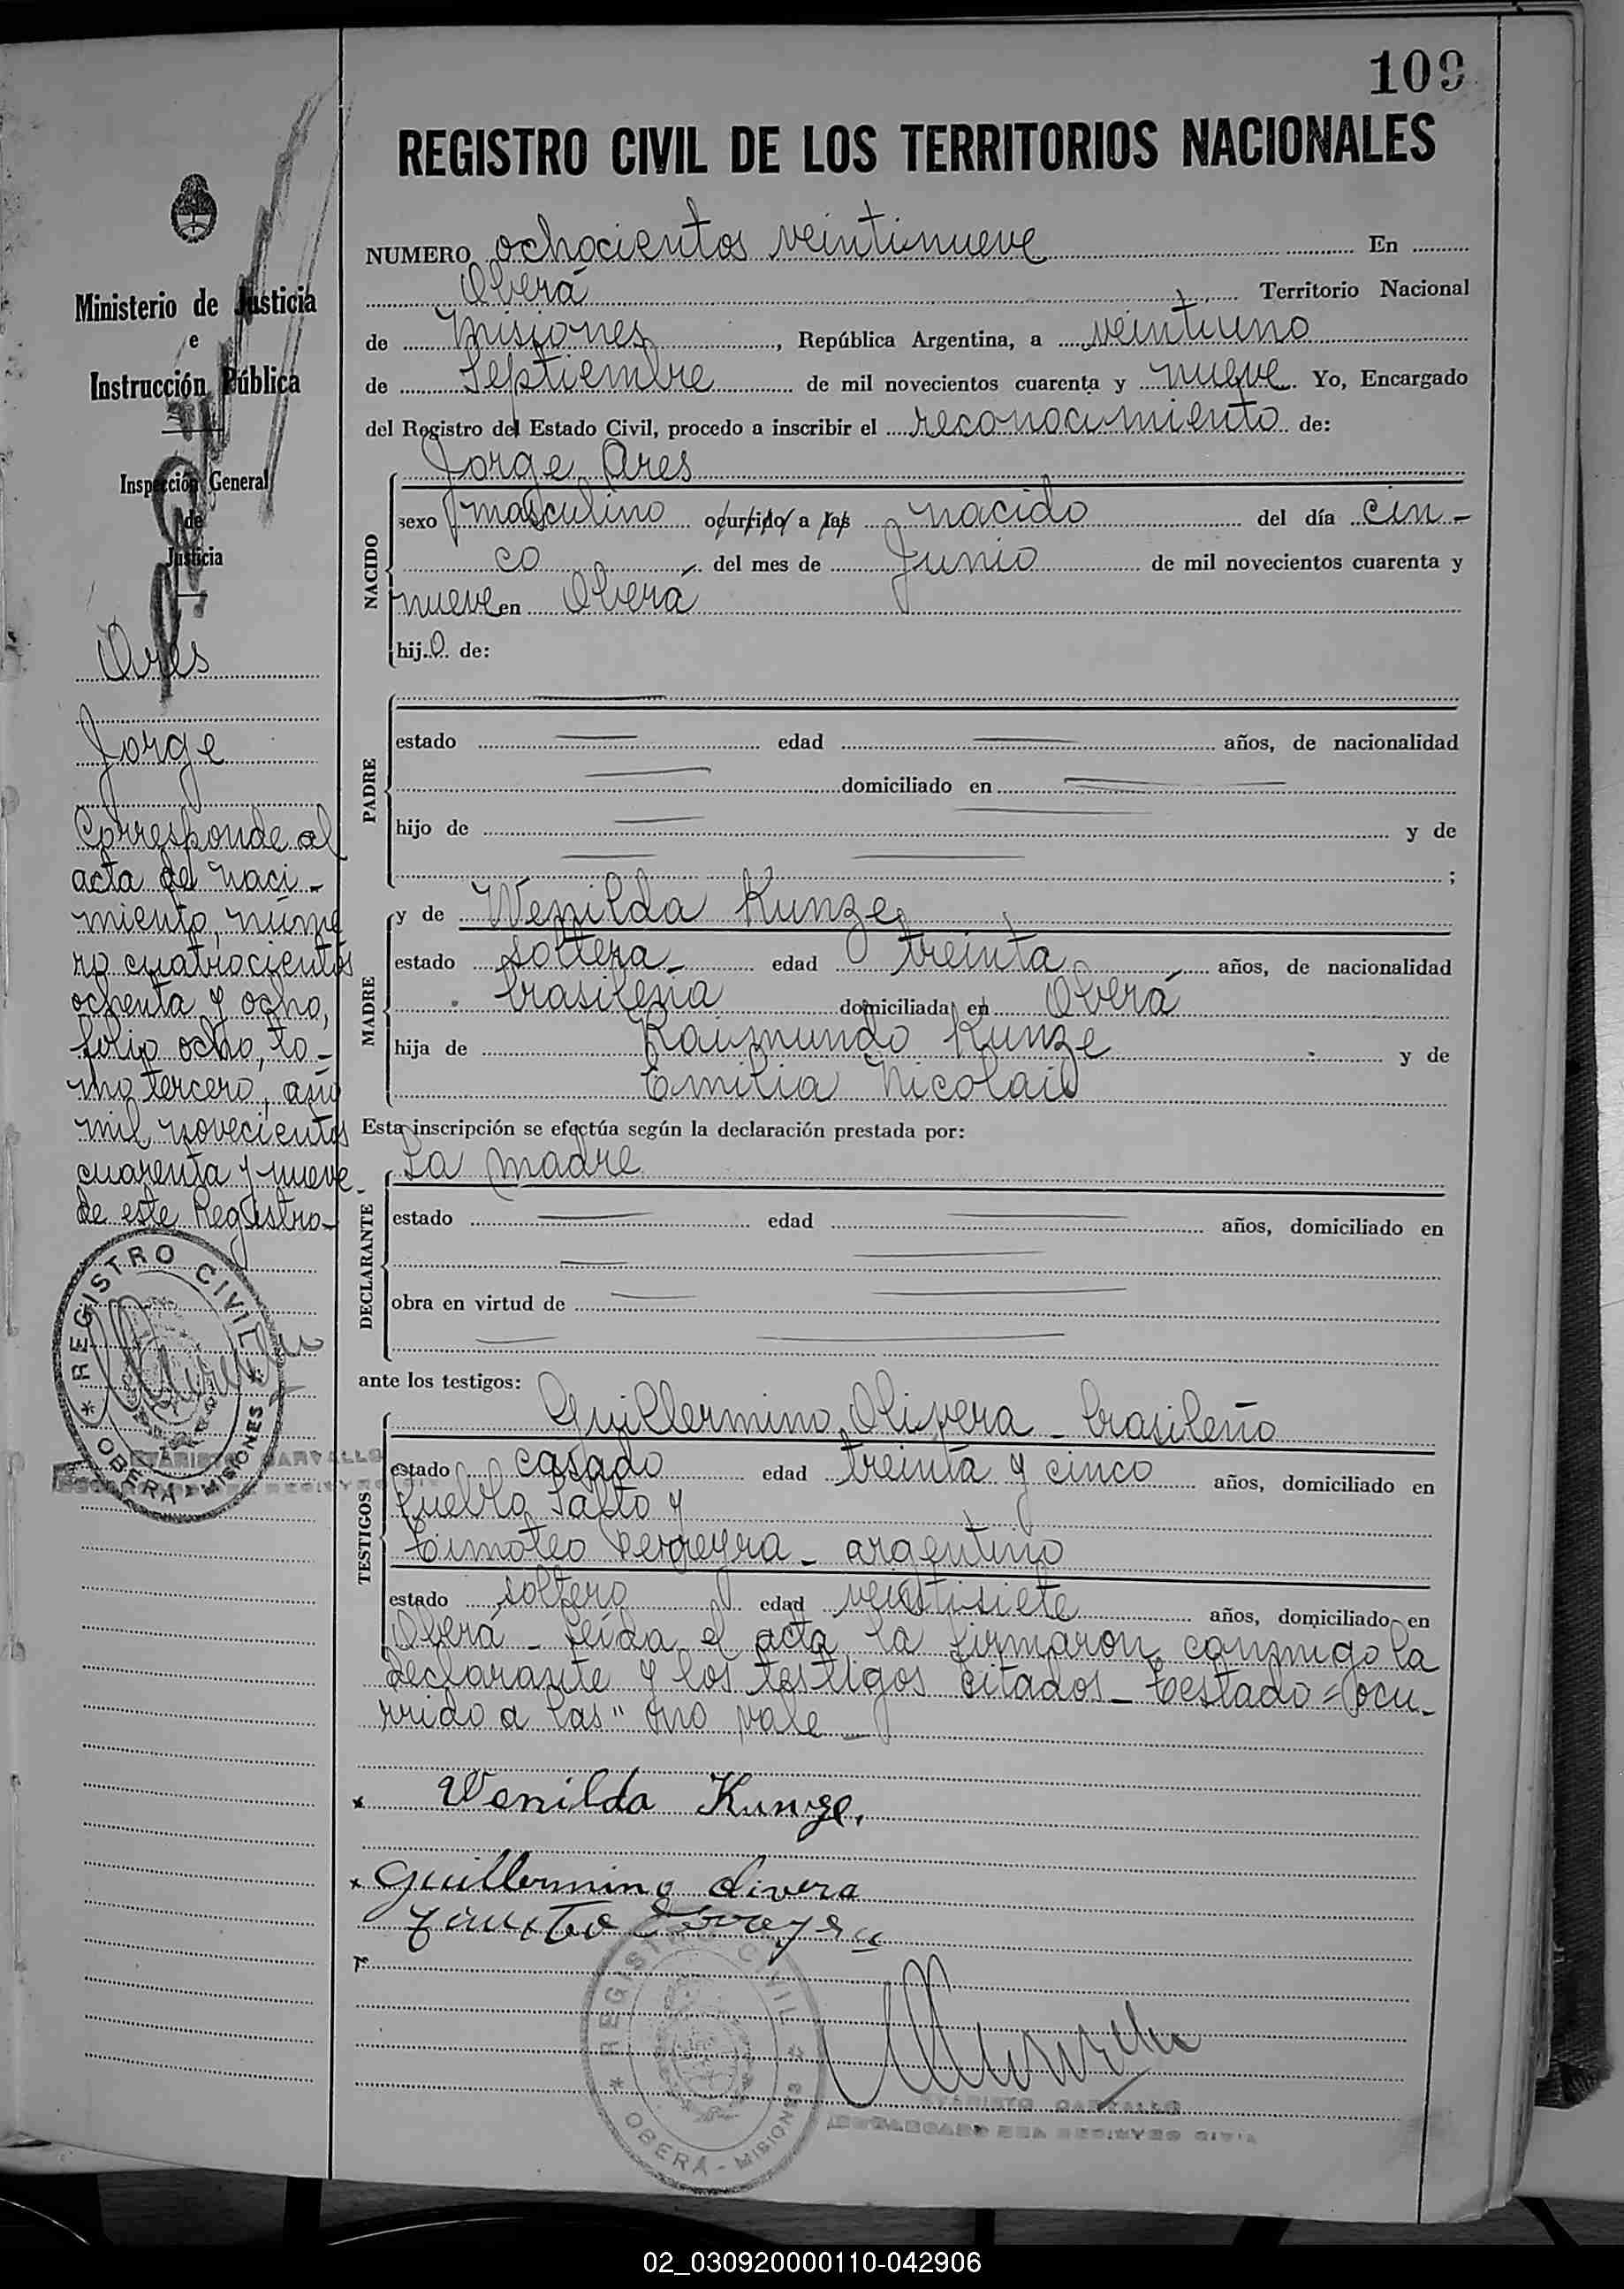 109
REGISTRO CIVIL DE LOS TERRITORIOS NACIONALES
NUMERO ochocientos veintinueve En
Oberá Territorio Nacional
de Misiones, República Argentina, a veintiuno
de Septiembre de mil novecientos cuarenta y nueve. Yo, Encargado
del Registro del Estado Civil, procedo a inscribir el reconocimiento de:
Jorge Ares
NACIDO
sexo masculino ocurrido a las nacido del día cin-
co del mes de Junio de mil novecientos cuarenta y
nueve en Oberá
hijo de:
PADRE
estado edad años, de nacionalidad
domiciliado en
hijo de y de
;
MADRE
y de Wenilda Kunze
estado soltera edad treinta años, de nacionalidad
brasileña domiciliada en Oberá
hija de Raimundo Kunze y de
Emilia Nicolai
Esta inscripción se efectúa según la declaración prestada por:
La madre
DECLARANTE
estado edad años, domiciliado en
obra en virtud de
ante los testigos:
TESTIGOS
Guillermino Olivera - brasileño
estado casado edad treinta y cinco años, domiciliado en
Pueblo Salto y
Timoteo Ferreyra - argentino
estado soltero edad veintisiete años, domiciliado en
Oberá - Leída el acta la firmaron conmigo la
declarante y los testigos citados - Testado = "ocu-
rrido a las" no vale -
Wenilda Kunze.
Guillermino Olivera
REGISTRO CIVIL
OBERÁ - MISIONES
EVARISTO CARVALLO
ENCARGADO DEL REGISTRO CIVIL
Ministerio de Justicia
e
Instrucción Pública
Inspección General
de
Justicia
Ares
Jorge
Corresponde al
acta de naci-
miento, núme
ro cuatrocientos
ochenta y ocho,
folio ocho, to-
mo tercero, año
mil novecientos
cuarenta y nueve-
de este Registro-
REGISTRO CIVIL
OBERÁ - MISIONES
EVARISTO CARVALLO
02_030920000110-042906